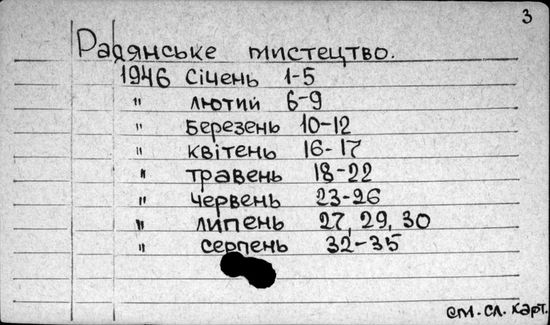 3
Радянське мистецтво.
1946 Січень 1-5
" лютий 6-9
" Березень 10-12
" квітень 16-17
" травень 18-22
" червень 23-26
" липень 27, 29, 30
" серпень 32-35
см. сл. карт.